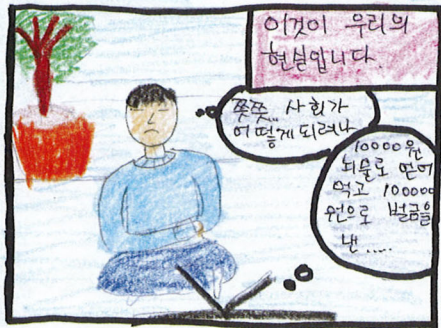 이것이 우리의
현실입니다.
쯧쯧.. 사회가
어떻게 되려나
10000원
뇌물로 얻어
먹고 100000
원으로 벌금을
낸.....